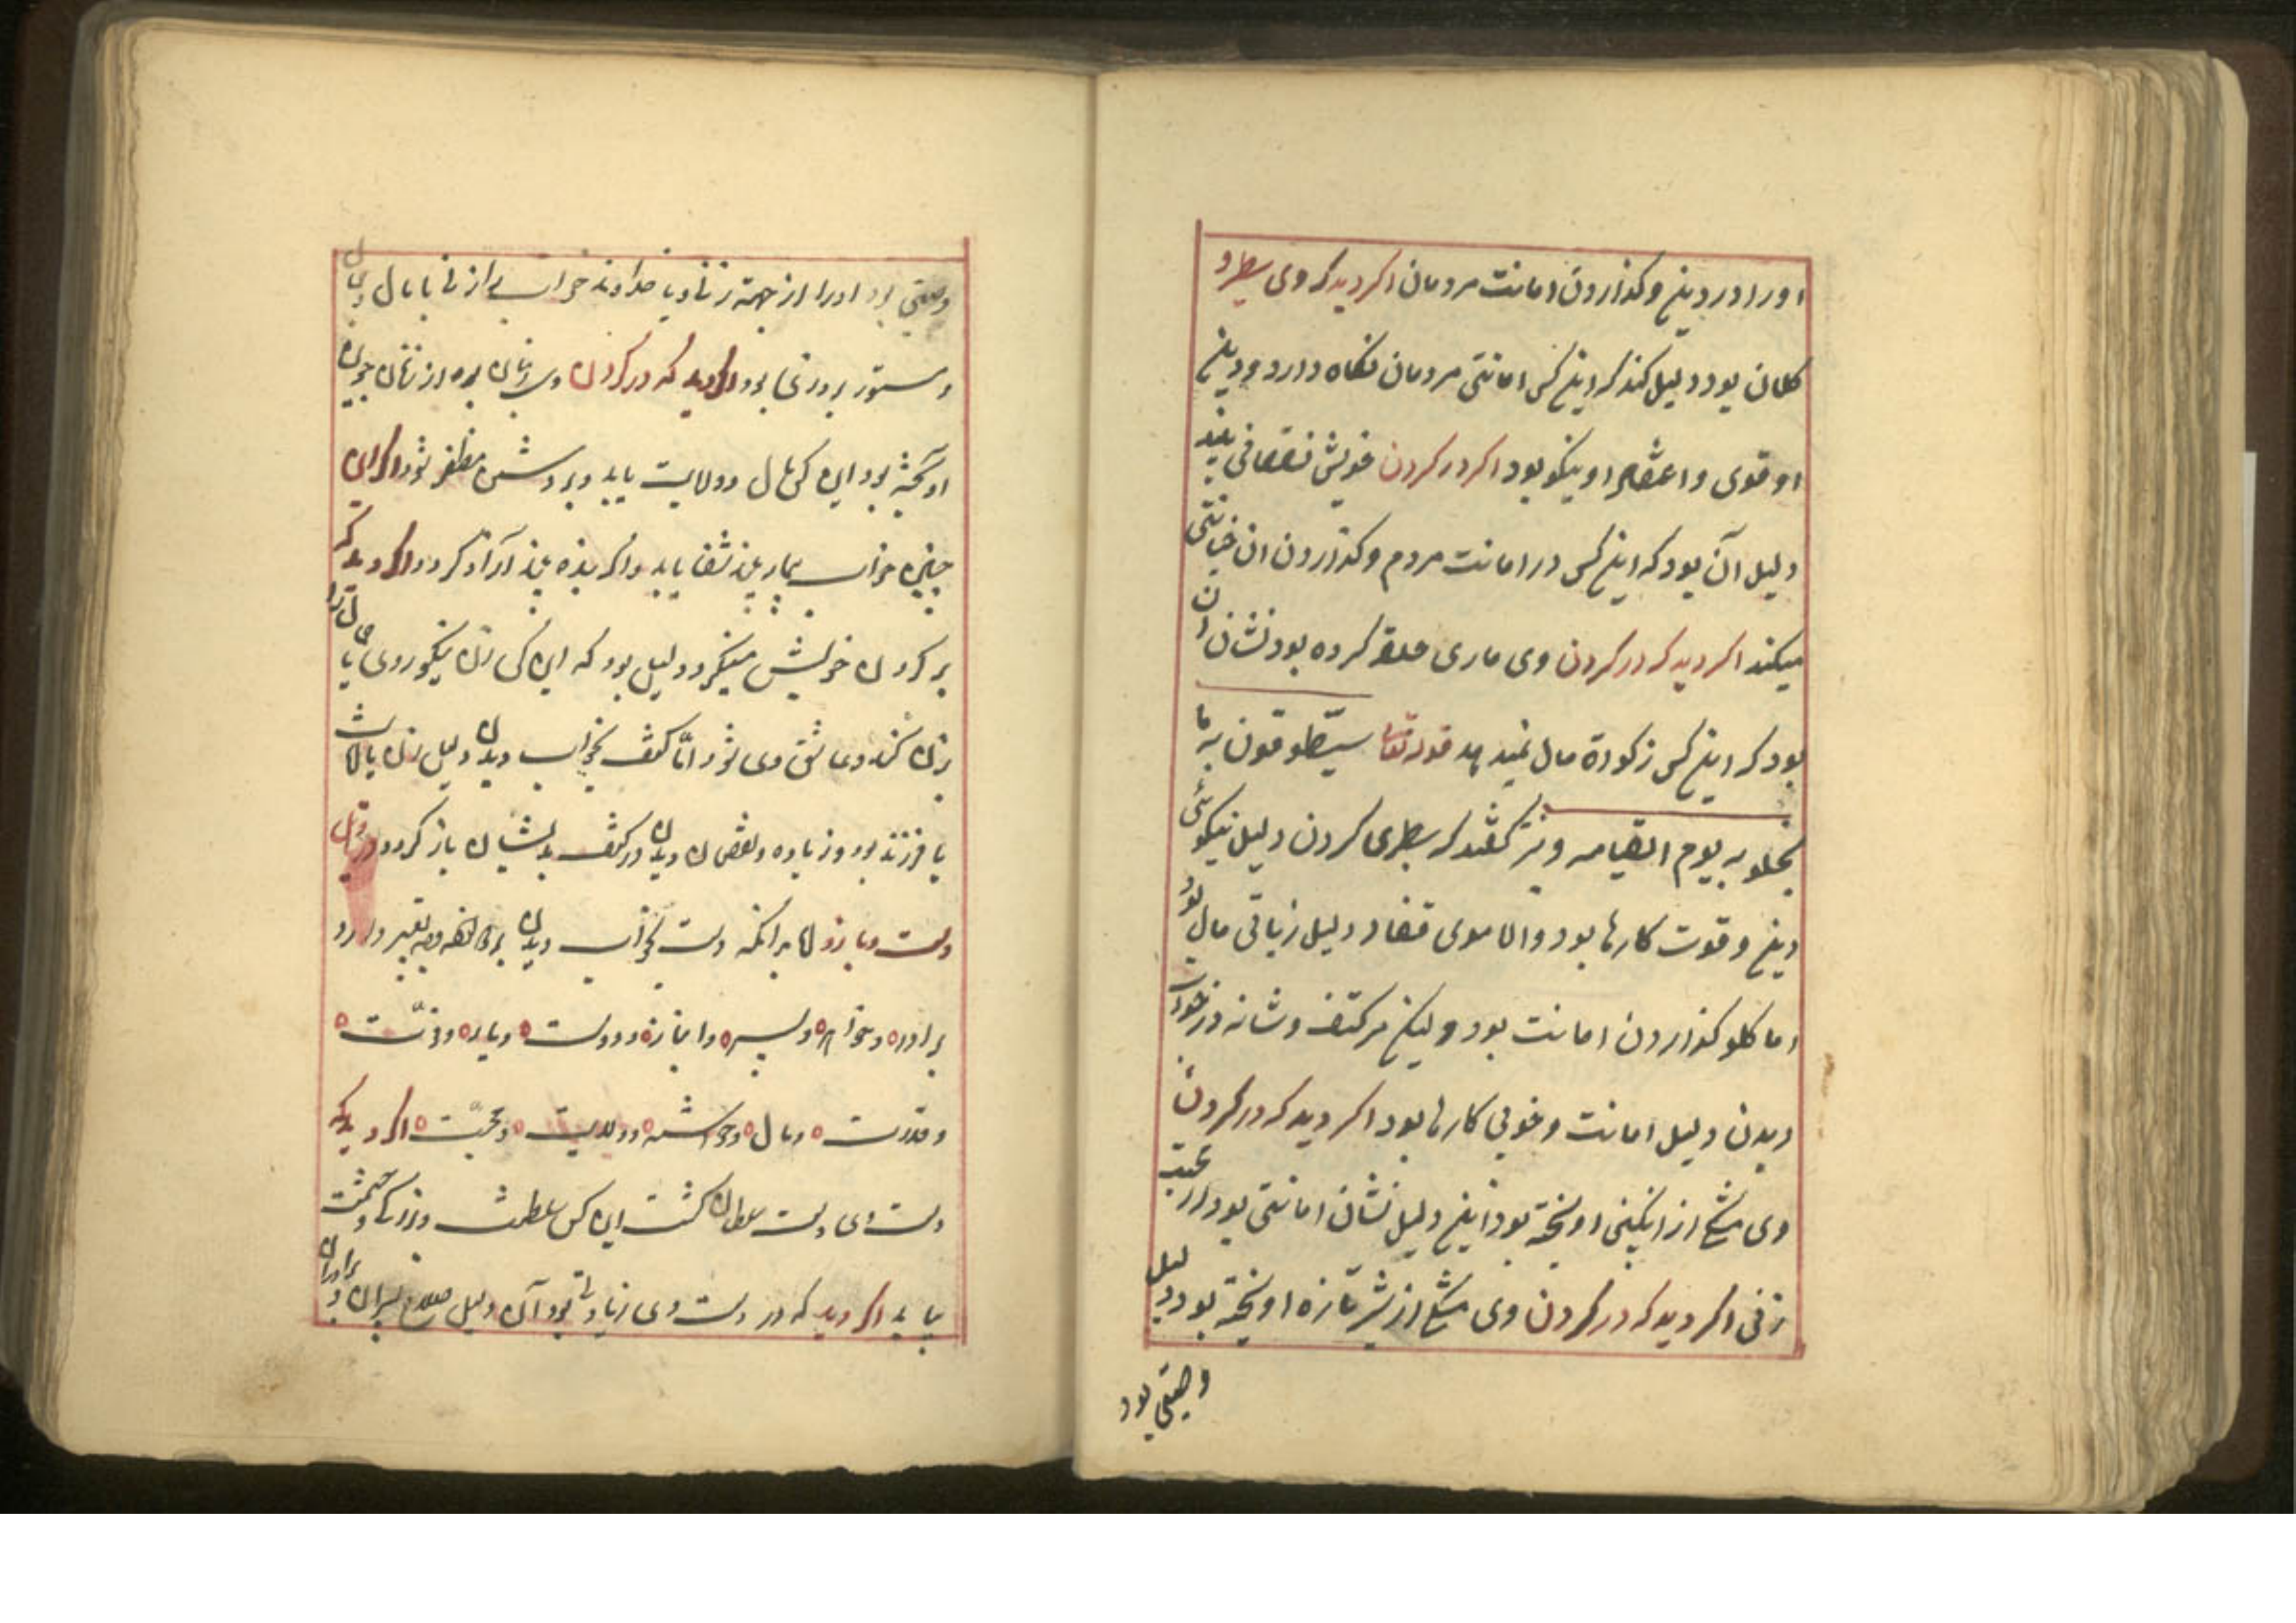 اورا در دین و کذاردن امانت مردمان اکر دید که وی سطرو
کلان بود دلیل کند که این کس امانتی مردمان نکاه دارد و دین
او قوی و اعتقاد او نیکو بود اکر در کردن خویش نقصانی بیند
دلیل آن بود که این کس در امانت مردم و کذاردن ان خیانتی
میکند اکر دید که در کردن وی ماری حلقه کرده بود نشان ان
بود که این کس زکوة مال نمیدهد قوله تعا سیطوقون به ما
بخلو به یوم القیامه و نیز کفتند که سطری کردن دلیل نیکوئی
دین و قوت کارها بود و الا موی قفا دلیل زیاتی مال بود
اما کلو کذاردن امانت بود ولیکن مر کتف و شانه در خواب
دیدن دلیل امانت و خوبی کارها بود اکر دید که در کردن
وی مشک از انکبین اویخته بود این دلیل نشان امانتی بود از
زنی اکر دید که در کردن وی مشک از شیر تازه اویخته بود دلیل
وصیتی بود
وصیتی بود اورا از جهة زنی و یا خداوند خواب را از نی با مال
دستور بود اکر دید که در کردن وی
اویخته بود این کس مال و ولایت یابد و بر دشمن مظفر شود اکر این
چنین خواب بیمار بیند شفا یابد و اکر بنده بیند آزاد کردد اکر دید که
بر کردن خویش مینکرد دلیل بود که این کس زن نیکو روی
زن کند و عاشق وی شود امّا کتف بخواب دیدن دلیل زن یا
یا فرزند بود و زیاده و نقصان دیدن در کتف بدیشان باز کردد در تاویل
دست و بازو بدانکه دست بخواب دیدن بر تعبیر دارد
برادر و خواهر و پسر و انباز و دوست و یار و
و قدرت و مال و خواسته و ولایت و محبّت اکر دید که
دست وی دست سلطان کشت این کس عظمت و بزرکی و حشمت
یابد اکر دید که در دست وی زیادتی بود آن دلیل صلاح پسران و برادران